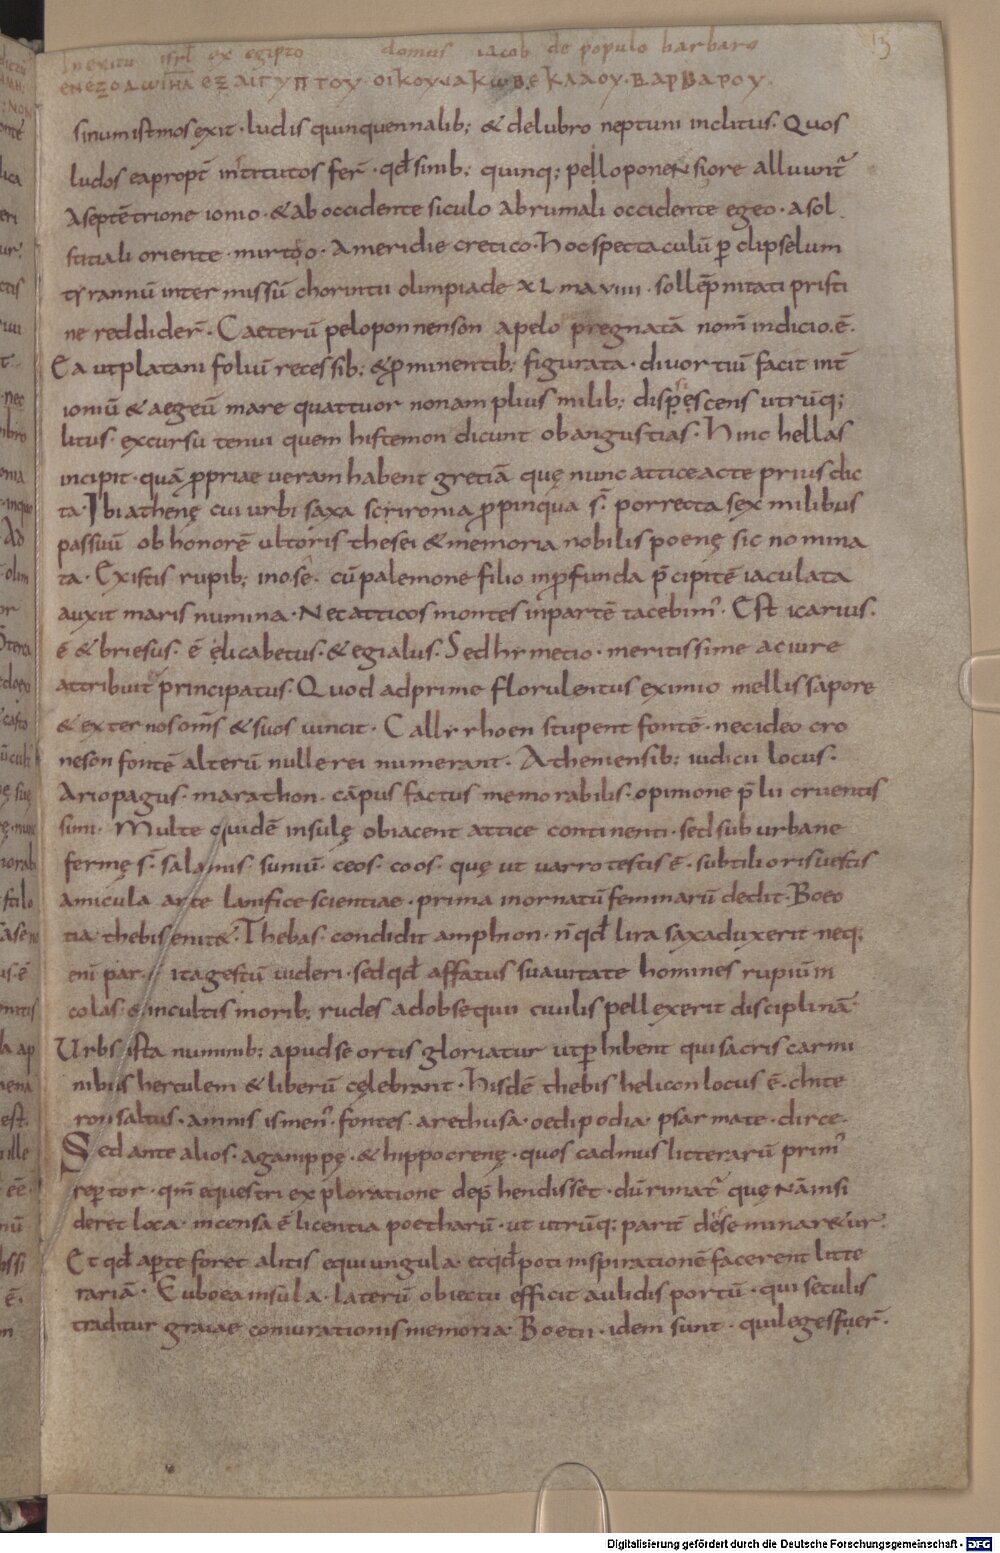 In exitu isrl ex egipto domus iacob de populo barbaro
ΕΝΕΞΟΔΩ ΙΗΛ ΕΞ ΑΙΓΥΠΤΟΥ· ΟΙΚΟΥ ΙΑΚΩΒ ΕΚ ΛΑΟΥ· ΒΑΡΒΑΡΟΥ·
13
sinum istmos exit · ludis quinquennalib; & delubro neptuni inclitus · Quos
ludos eapropt̄ institutos fer̄ · qd̄ sinib; quinq; pelloponensiore alluunt̄
Aseptētrione ionio · & ab occidente siculo abrumali occidente egeo · asol
stitiali oriente · mirtoo · Ameridie cretico · Hoc spectaculū ꝑ clipselum
tyrannū intermissū chorintii olimpiade xL maviiii · sollēpnitati pristi
ne reddider̄ · Caeterū peloponnenson apelo pregnatā nom̄ indicio · ē ·
Ea utplatani foliū recessib; & ꝓminentib; figurata · divortiū facit int̄
ioniū & aegeū mare quattuor nonamplius milib; dispescens utrūq;
litus excursu tenui quem histemon dicunt obangustias · Hinc hellas
incipit · quā ꝓpriae veram habent gretiā quę nunc attice acte prius dic
ta · Ibi athenę cui urbi saxa scrironia ꝓpinqua s̄ · porrecta sex milibus
passuū ob honorē ultoris thesei & memoria nobilis poenę sic nomina
ta · Existis rupib; inose · cū palemone filio inꝓfunda p̄cipitē iaculata
auxit maris numina · Nec atticos montes inpartē tacebim᾽ · Est icarius ·
ē & briesus · ē elicabetus · & egialus · Sed hrmetio · meritissime ac iure
attribuit principatus · Quod adprime florulentus eximio mellis sapore
& externos om̄s & suos vincit · Callirrhoen stupent fontē · nec ideo cro
neson fontē alterū nulle rei numerant · Atheniensib; iudicii locus ·
Ariopagus · marathon · cāpus factus memorabilis · opinione p̄lii cruentis
simi · Multe quidē insulę obiacent attice continenti · sed suburbane
fermę s̄ · salamis · suniū · ceos · coos · quę ut varro testis ē · subtilioris vestis
amicula arte lanifice scientiae · prima inornatū feminarū dedit · Boeo
tia thebis enit& · Thebas · condidit amphion · n̄ qd̄ lira saxa duxerit neq;
enī par · ita gestū videri · sed qd̄ affatus suavitate homines rupiū in
colas · & incultis morib; rudes adobsequii civilis pellexerit disciplinā
Urbs ista numinib; apud se ortis gloriatur ut ꝑhibent qui sacris carmi
nibus herculem & liberū cęlebrant · Hisdē thebis helicon locus ē · chite
ron saltus · amnis ismen᾽ · fontes · arethusa · oedipodia · psarmate · dirce ·
Sed ante alios · aganippę · & hippocrenę · quos cadmus litterarū prim᾽
repertor · qm̄ equestri exploratione dep̄hendisset · dū rimat᾽ quę nā insi
deret loca · incensa ē licentia poetharū · ut utrūq; part̄ deseminar&ur ·
Et qd̄ aꝑte foret alitis equi ungula · etqd̄ poti inspirationē facerent litte
rariā · Euboea insula · laterū obiectu efficit aulidis portū · qui seculis
traditur graiae coniurationis memoria · Boetii · idem sunt · qui leges fuer̄ ·
Digitalisierung gefördert durch die Deutsche Forschungsgemeinschaft - DFG